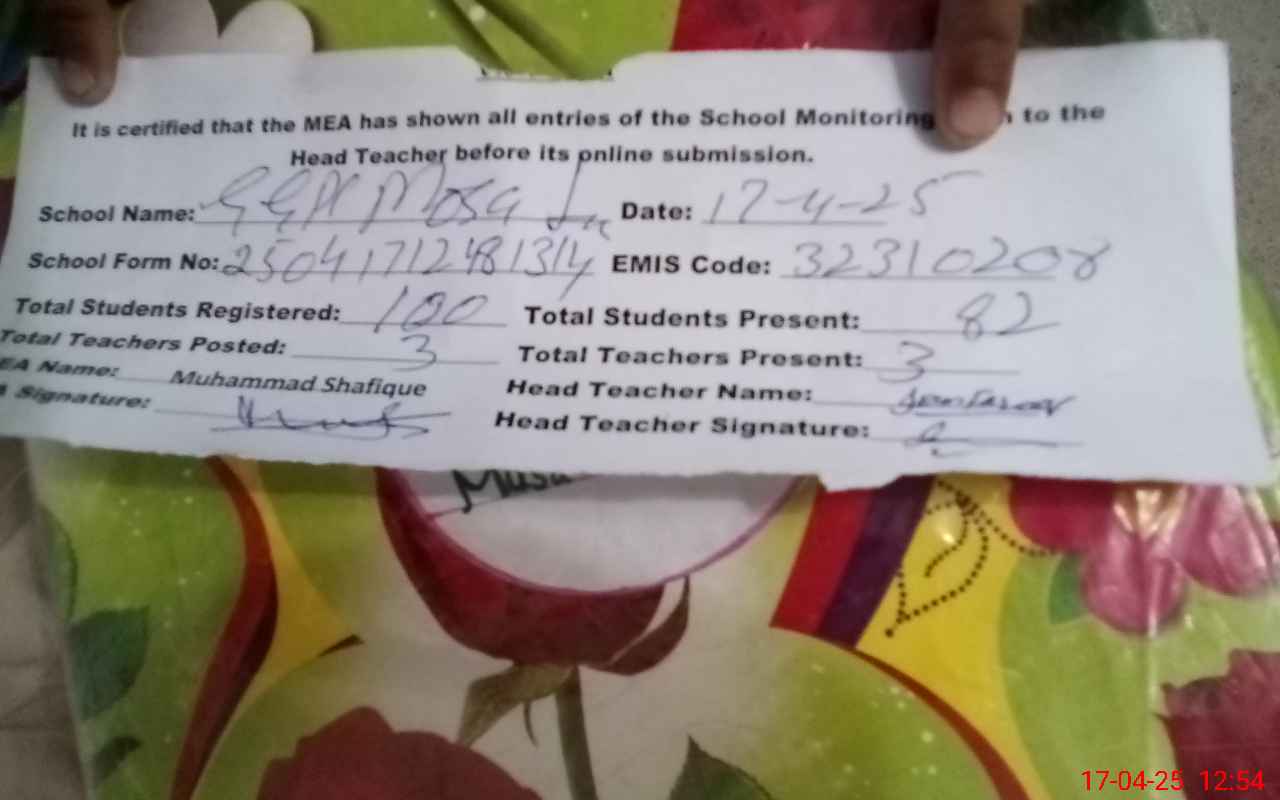 It is certified that the MEA has shown all entries of the School Monitoring to the
Head Teacher before its online submission.
School Name: Mosa Date: 17-4-25
School Form No: 25041712481314 EMIS Code: 32310208
Total Students Registered: 100 Total Students Present: 82
Total Teachers Posted: 3 Total Teachers Present: 3
EA Name: Muhammad Shafique Head Teacher Name:
Signature: Head Teacher Signature:
Musa
17-04-25 12:54